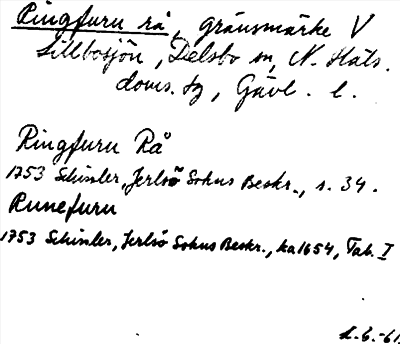 Ringfuru rå, gränsmärke V
Lillbosjön, Delsbo sn, N. Häls.
doms. tg, Gävl. l.
Ringfuru Rå
1753 Schissler, Jerlsö Sokns Beskr., s. 34.
Runefuru
1753 Schissler, Jerlsö Sokns Beskr., ka 1654, Tab. I
L.B.-61